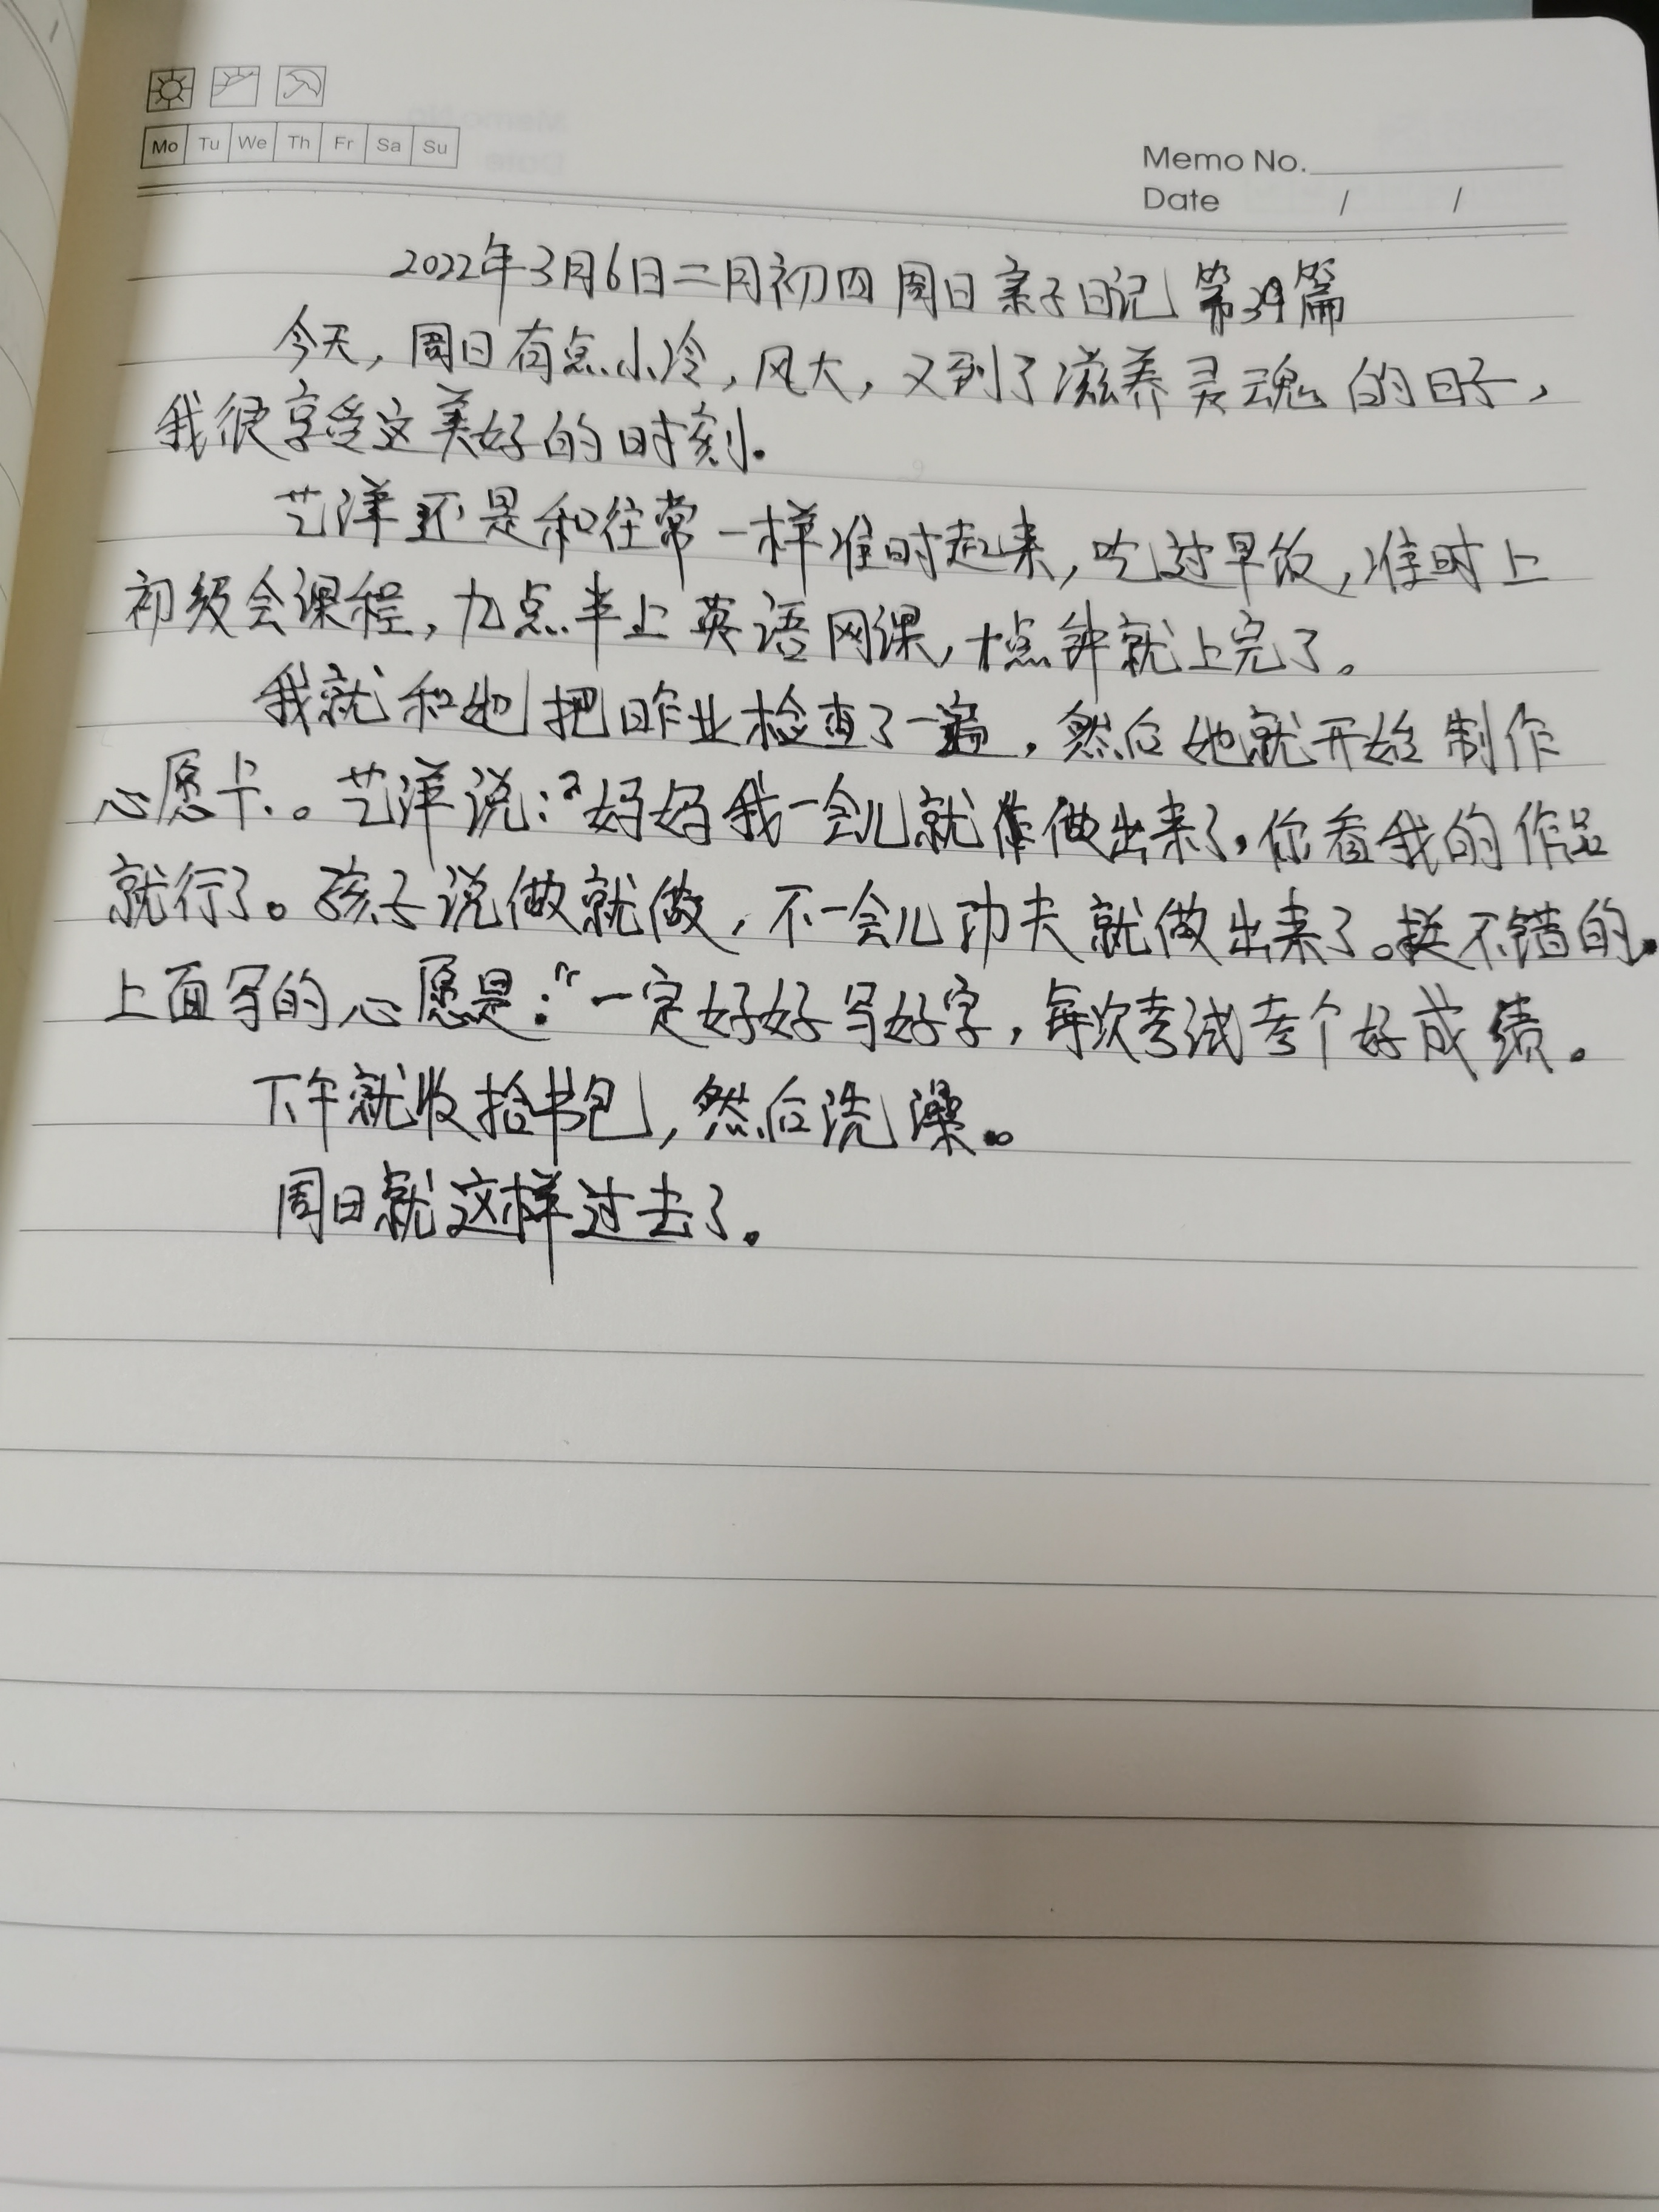 Mo Tu We Th Fr Sa Su
Memo No.
Date / /
2022年3月6日二月初四周日亲子日记 第39篇
今天,周日有点小冷,风大,又到了滋养灵魂的日子,
我很享受这美好的时刻.
艺洋还是和往常一样准时起来,吃过早饭,准时上
初级会课程,九点半上英语网课,十点钟就上完了。
我就和她把昨业检查了一遍,然后她就开始制作
心愿卡.。艺洋说:“妈妈我一会儿就做出来了,你看我的作品
就行了。孩子说做就做,不一会儿功夫就做出来了。挺不错的.
上面写的心愿是:“一定好好写好字,每次考试考个好成绩。
下午就收拾书包,然后洗澡。
周日就这样过去了。